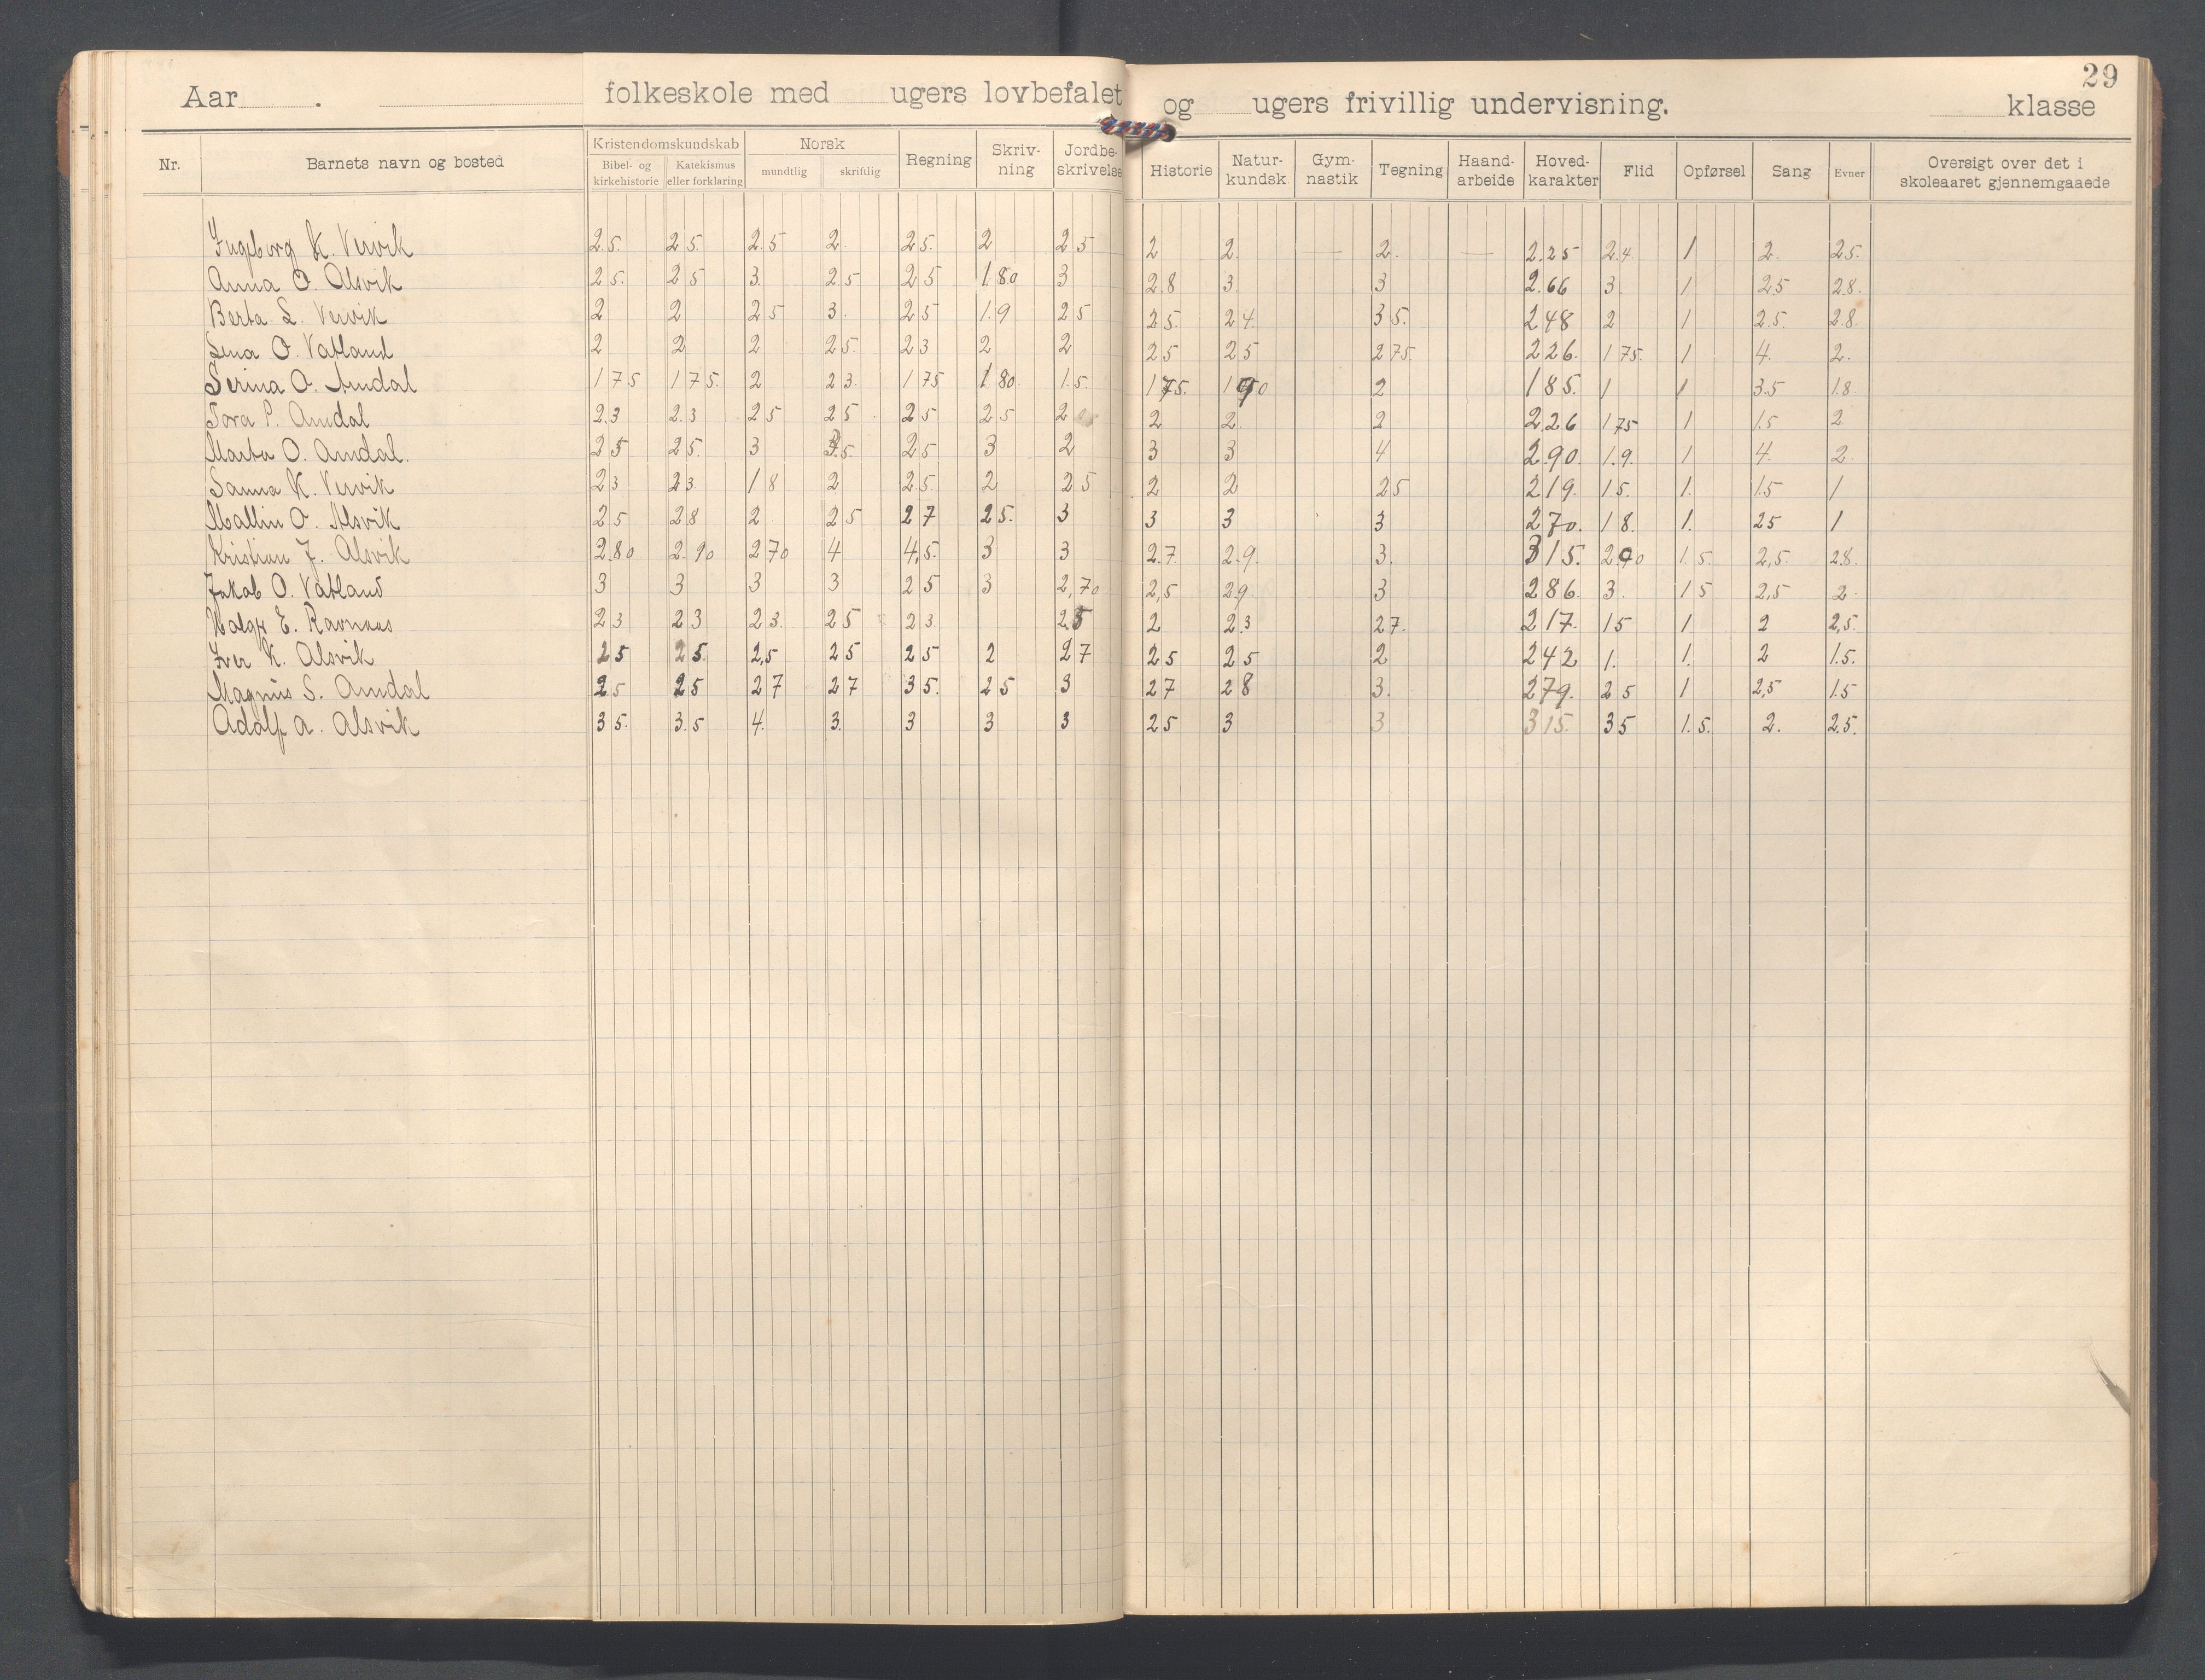 29
Aar . folkeskole med ugers lovbefalet og ugers frivillig undervisning. klasse
Nr. Barnets navn og bosted Kristendomskundskab Bibel- og kirkehistorie Katekismus eller forklaring Norsk mundtlig skriftlig Regning Skriv-ning Jordbe-skrivelse Historie Natur-kundsk. Gym-nastik Tegning Haand-arbeide Hoved-karakter Flid Opførsel Sang Evner Oversigt over det i skoleaaret gjennemgaaede
Ingeborg K. Vervik 2.5. 2 5. 2.5 2. 2 5. 2 2 5 2 2. — 2. — 2.25 2.4. 1 2. 25.
Anna O. Alsvik 2 5. 2 5 3. 2.5 2 5 1.80 3 2.8 3 3 2.66 3. 1 25 28.
Berta L. Vervik 2 2 2 5 3. 2 5 1.9 2 5 2 5. 2 4. 3 5. 248 2 1 2.5. 2.8.
Lena O. Vatland 2 2 2 2 5. 2 3 2 2 2 5 2 5 2 75. 226. 1 75. 1 4. 2.
Serina O. Amdal 1 75 1 75. 2 2 3. 1 75 1 80. 1.5. 1 75. 1 90 2 185. 1 1 3.5 1.8.
Tora P. Amdal 2.3 2.3 2 5 2 5 2 5 2 5 2 2 2. 2 226 1 75 1 1.5 2
Marta O. Amdal. 2 5 2 5. 3 3.5. 2 5 3 2 3 3 4 290. 1.9. 1 4. 2.
Sanna K. Vervik 2 3 2 3. 1 8 2 2 5. 2 2 5 2 2 2 5 219. 1 5. 1. 1.5 1
Mallin O. Alsvik 2 5 2 8 2 2 5 2 7 2 5. 3 3 3 3 270. 1 8. 1. 25 1
Kristian J. Alsvik 2.80 2.90 2 70 4 4,5. 3 3 2.7. 2.9. 3. 315. 2 90 1 5. 2,5. 28.
Jakob O. Vatland 3 3 3 3 2 5 3 2,70 2,5 2 9 3 286. 3. 1 5 2,5 2
Holger E. Ravnaas 2 3 2 3 2 3. 2 5 2 3. 2.5 2 2.3 2 7. 217. 15 1 2 2,5.
Iver K. Alsvik 2 5 2 5. 2,5 2 5 2 5 2 2 7 2 5 2 5 2 242 1. 1. 2 1.5.
Magnus S. Amdal 2 5 2 5 2 7 2 7 3 5. 2 5 3 2 7 2 8 3. 279. 2 5 1 2,5 1.5
Adolf A. Alsvik 3 5. 3.5 4. 3. 3 3 3 2 5 3 3. 315. 3 5 1.5. 2. 2.5.